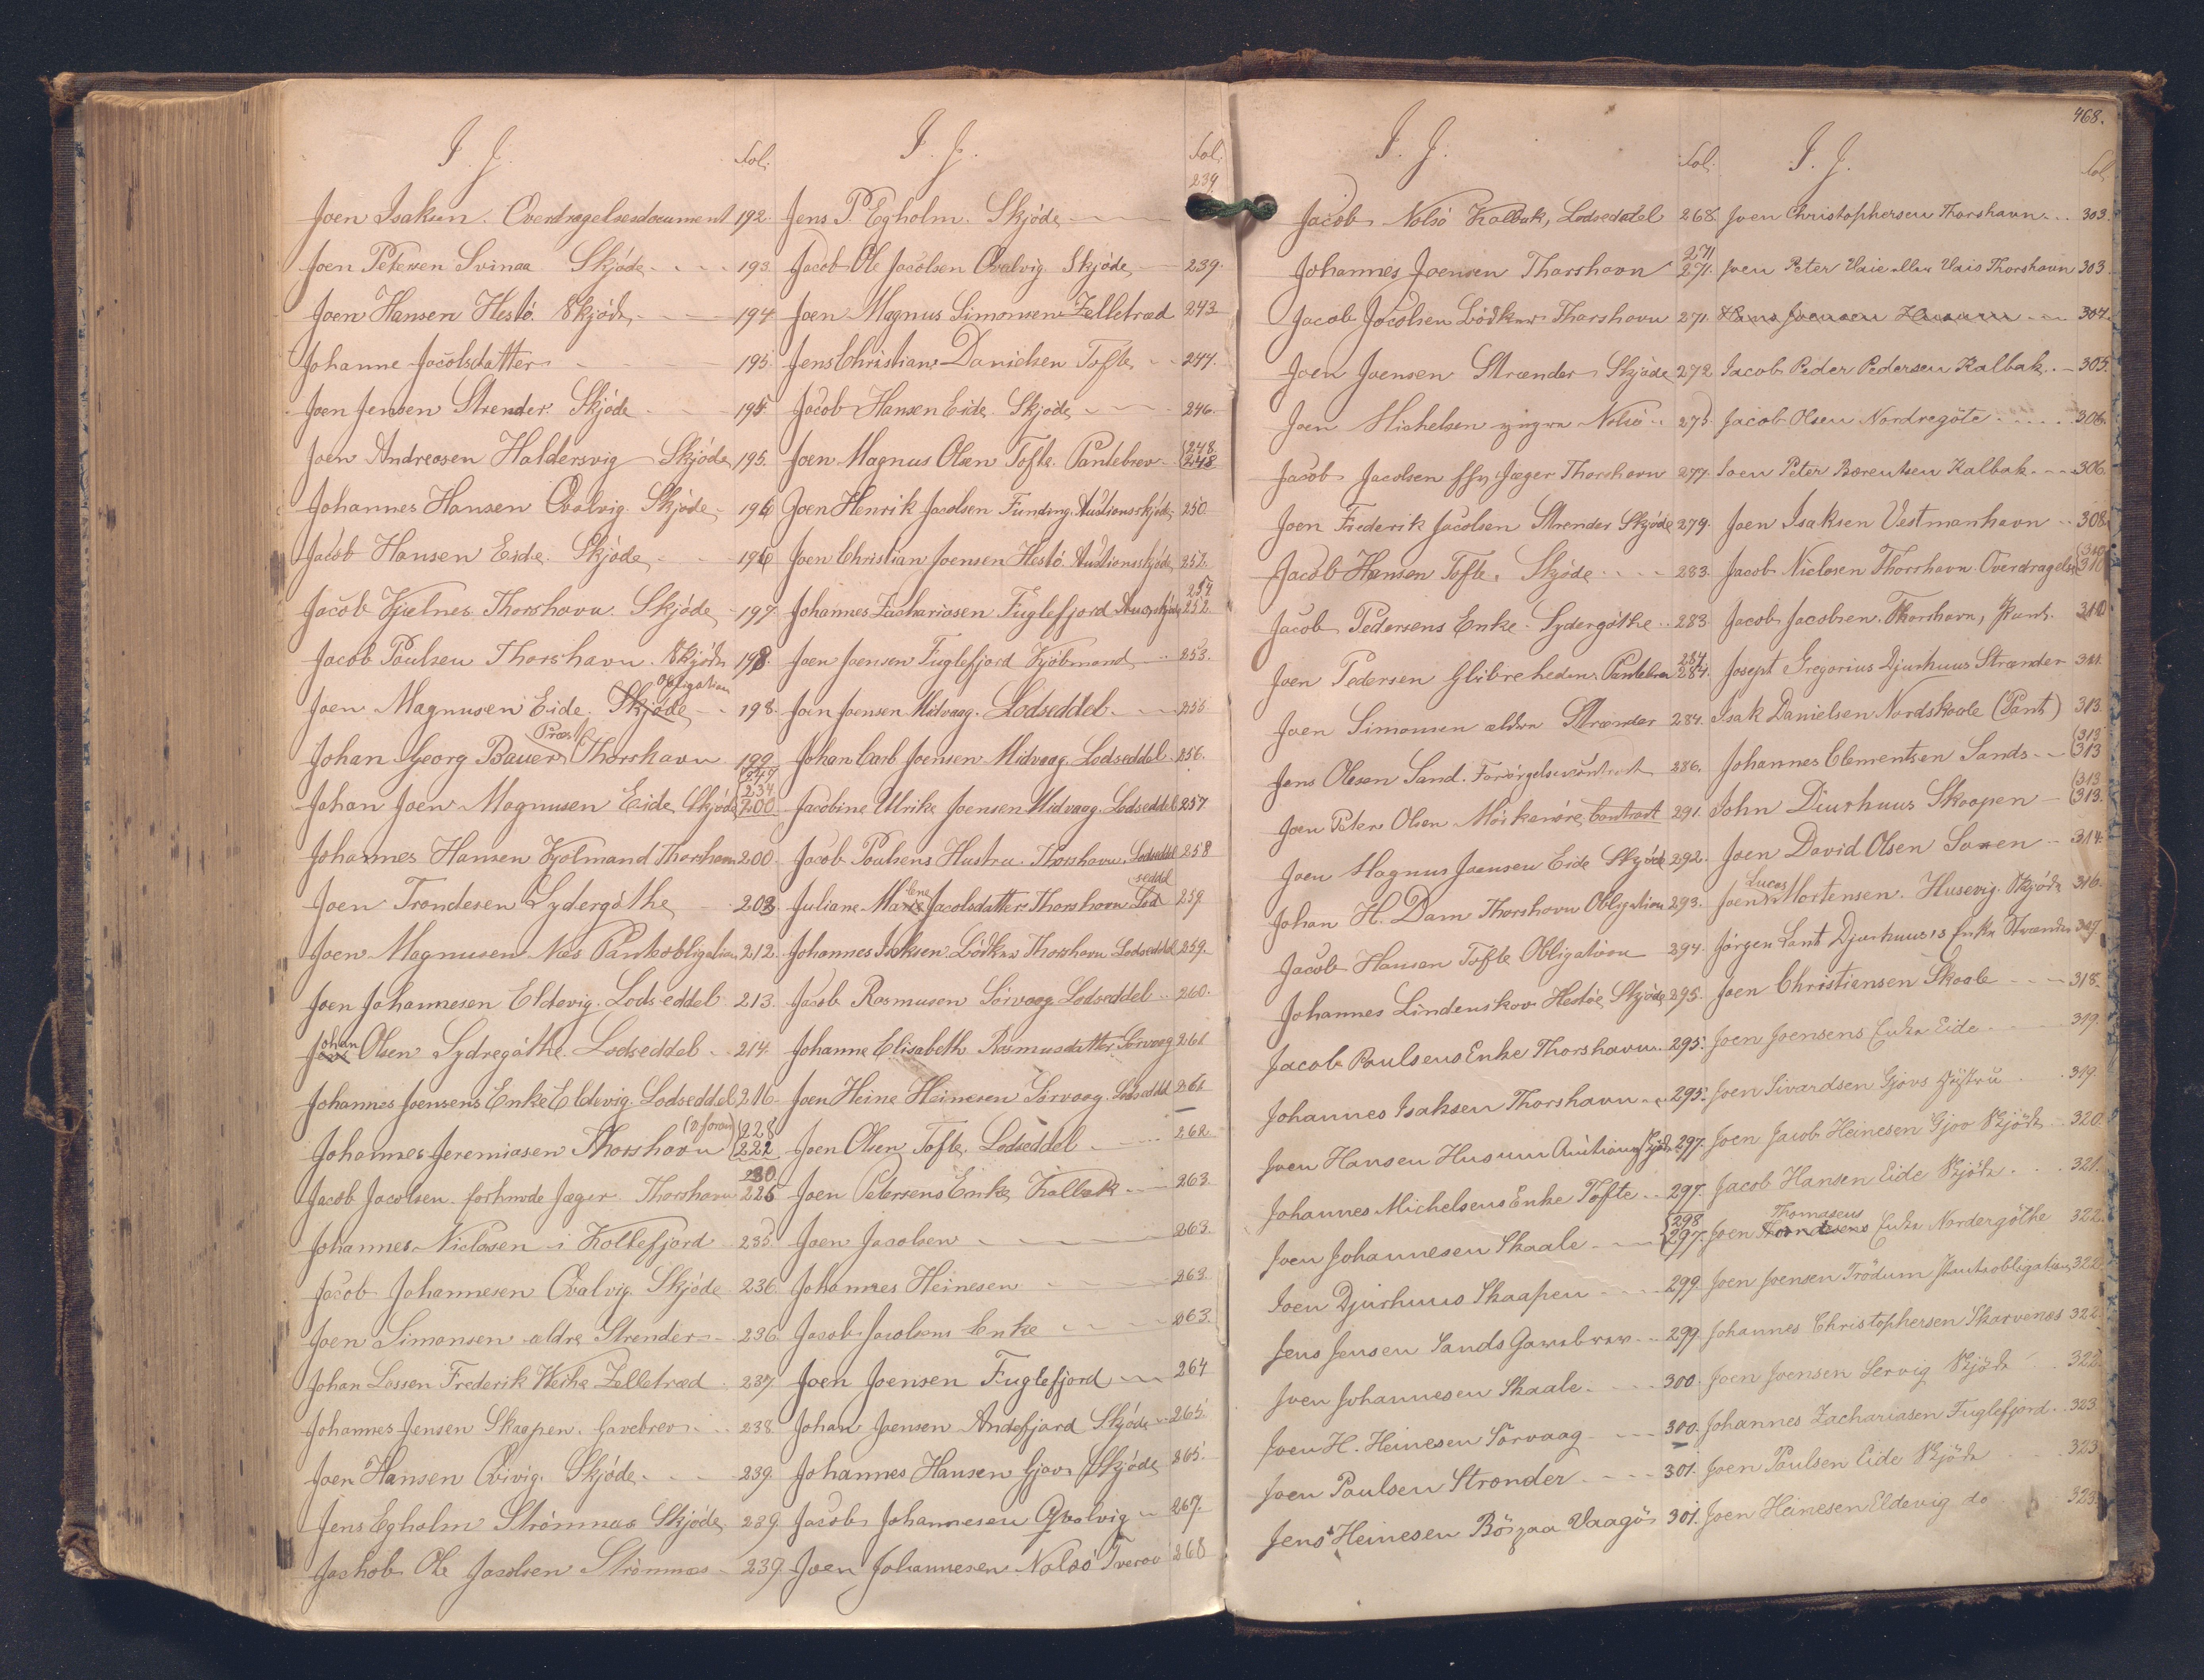 468.
I. J. Fol.
Joen Isaksen. Overdragelsesdocument 192.
Joen Petersen Svinaa Skjöde 193.
Joen Hansen Hestö. Skjöde 194.
Johanne Jacobsdatter 195.
Joen Jensen Strender. Skjöde 195.
Joen Andreasen Haldersvig Skjöde 195.
Johannes Hansen Qvalvig. Skjöde 196
Jacob Hansen Eide. Skjöde 196
Jacob Kjelnes Thorshavn. Skjöde 197
Jacob Poulsen Thorshavn. Skjöde 198.
Obligation
Joen Magnusen Eide. Skjöde 198.
Præst
Johan Georg Bauer Thorshavn 199
234
Johan Joen Magnusen Eide Skjöde 200
Johannes Hansen Kjölmand Thorshavn 200.
Joen Trondesen Sydergöthe 203.
Joen Magnusen Næs Panteobligation 212.
Joen Johannesen Eldevig. Lodseddel 213.
Johan Olsen Sydregöthe. Lodseddel 214.
Johannes Joensens Enke Eldevig. Lodseddel 216.
228
Johannes Jeremiasen Thorshavn 222
230
Jacob Jacobsen forhnvde Jæger Thorshavn 225
Johannes Niclasen i Kollefjord 235.
Jacob Johannesen Qvalvig. Skjöde 236.
Joen Simonsen ældre Strender 236.
Johan Lassen Frederik Weihe Zelletræd 237
Johannes Jensen Skaapen. Gavebrev 238.
Joen Hansen Qvivig. Skjöde 239.
Jens Egholm Strömnæs Skjöde 239.
Jachob Ole Jacobsen Strömnæs 239.
I. J. Fol.
239
Jens P. Egholm. Skjöde
Jacob Ole Jacobsen Qvalvig. Skjöde 239.
Joen Magnus Simonsen Zelletræd 243
Jens Christian Danielsen Tofte 244.
Jacob Hansen Eide. Skjöde 246.
248.
Joen Magnus Olsen Tofte. Pantebrev 248
Joen Henrik Jacobsen Funding. Auctionsskjöde 250.
Joen Christian Joensen Hestö. Auctionsskjöde 252.
254
Johannes Zachariasen Fuglefjord Aucskjöde 252.
Joen Joensen Fuglefjord Kjöbmand 253.
Joen Joensen Midvaag. Lodseddel 255
Johan Carl Joensen Midvaag. Lodseddel 256.
Jacobine Ulrike Joensen Midvaag. Lodseddel 257
Jacob Poulsens Hustru Thorshavn. Lodseddel 258
seddel
Juliane Marie Jacobsdatter Thorshavn Lod 259
Johannes Isaksen Bödker Thorshavn Lodseddel 259.
Jacob Rasmusen Sörvaag Lodseddel 260.
Johanne Elisabeth Rasmusdatter Sörvaag 261
Joen Heine Heinesen Sörvaag. Lodseddel 261
Joen Olsen Tofte. Lodseddel 262
Joen Petersens Enke Kalbak 263.
Joen Jacobsen 263.
Johannes Heinesen 263.
Jacob Jacobsens Enke 263.
Joen Joensen Fuglefjord 264
Johan Joensen Andefjord Skjöde 265.
Johannes Hansen Gjov Skjöde 265.
Jacob Johannesen Qvalvig 267.
Joen Johannesen Nolsö Tveraa 268
I. J. Fol.
Jacob Nolsö Kalbak, Lodseddel 268
271
Johannes Joensen Thorshavn 271.
Jacob Jacobsen Bödker Thorshavn 271.
Joen Joensen Strænder Skjöde 272
Joen Michelsen yngre Nolsö 275.
Jacob Jacobsen Jæger Thorshavn 277.
Joen Frederik Jacobsen Strender Skjöde 279.
Jacob Hansen Tofte. Skjöde 283.
Jacob Pedersens Enke Sydergöthe 283
284
Joen Pedersen Glibreheden Pantebrev 284.
Joen Simonsen ældre Strænder 284.
Jens Olesen Sand. Forsörgelsescontract 286.
Joen Peter Olsen Morkenöre Contract 291.
Joen Magnus Joensen Eide Skjöde 292.
Johan H. Dam Thorshavn Obligation 293.
Jacob Hansen Tofte Obligation 294.
Johannes Lindenskov Hestöe Skjöde 295.
Jacob Poulsens Enke Thorshavn 295.
Johannes Isaksen Thorshavn 295.
Joen Hansen Husum Auctionsskjöde 297.
Johannes Michelsens Enke Tofte 297.
298
Joen Johannesen Skaale 297.
Joen Djurhuus Skaapen 299.
Jens Jensen Sands Gavebrev 299.
Joen Johannesen Skaale 300.
Joen H. Heinesen Sörvaag 300.
Joen Poulsen Stronder 301.
Jens Heinesen Bö paa Vaagö 301.
I. J. Fol.
Joen Christophersen Thorshavn 303.
Joen Peter Vaie eller Vais Thorshavn 303.
Hans Joensen Husum 304.
Jacob Peder Pedersen Kalbak 305.
Jacob Olsen Nordregöte 306.
Joen Peter Bærentsen Kalbak 306.
Joen Isaksen Vestmanhavn 308
310
Jacob Niclasen Thorshavn Overdragelse 310
Jacob Jacobsen. Thorshavn, Pant. 310
Josept Gregorius Djurhuus Strænder 311.
Isak Danielsen Nordskaale (Pant) 313.
313
Johannes Clementsen Sands 313
313
John Djurhuus Skaapen 313.
Joen David Olsen Saxen 314.
Lucas
Joen Mortensen. Husevig. Skjöde 316.
Jörgen Lant Djurhuus's Enke Strænder 317
Joen Christiansen Skaale 318.
Joen Joensens Enke Eide 319.
Joen Sivardsen Gjovs Hustru 319.
Joen Jacob Heinesen Gjov Skjöde 320.
Jacob Hansen Eide Skjöde 321.
Thomaseus
Joen Trondesens Enke Nordergöthe 322.
Joen Joensen Trödum Panteobligation 322.
Johannes Christophersen Skarvenæs 322
Joen Joensen Lervig Skjöde 322.
Johannes Zachariasen Fuglefjord 323
Joen Poulsen Eide Skjöde 323
Joen Heinesen Eldevig do 323.